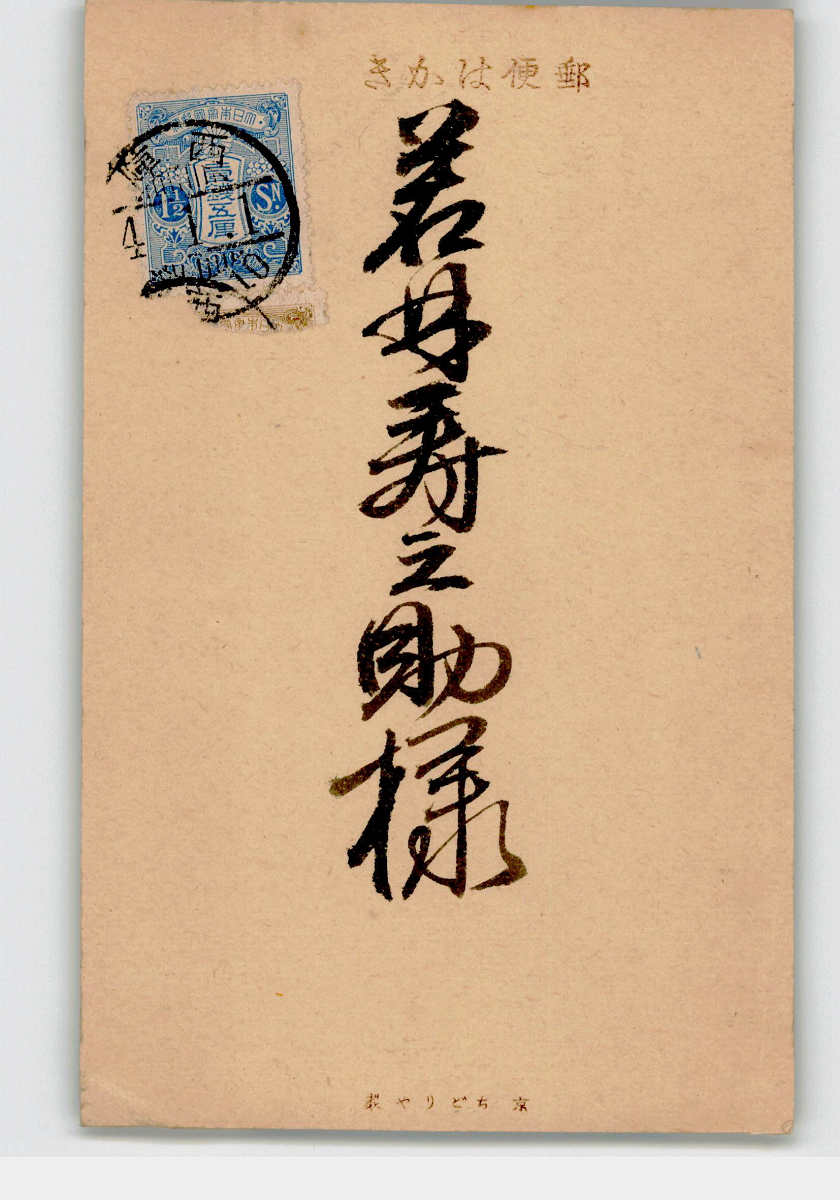 郵便はかき
若林寿之助様
大日本帝國郵便
壹錢五厘
1½ Sn
西
4.1.1
京ちどりや製